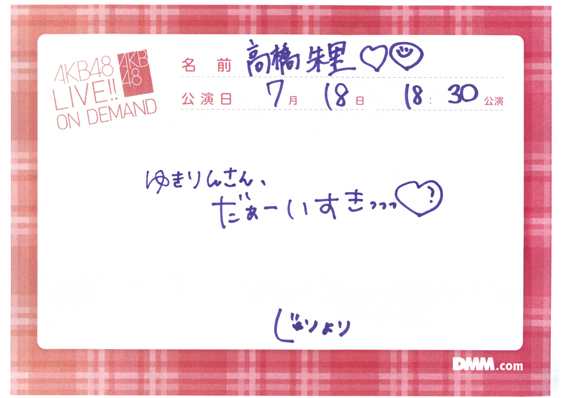 AKB48
LIVE!!
ON DEMAND
AKB
48
名前 高橋朱里♡
公演日 7月 18日 18:30公演
ゆきりんさん、
だぁーいすきっっっ♡?
じゅりより
DMM.com